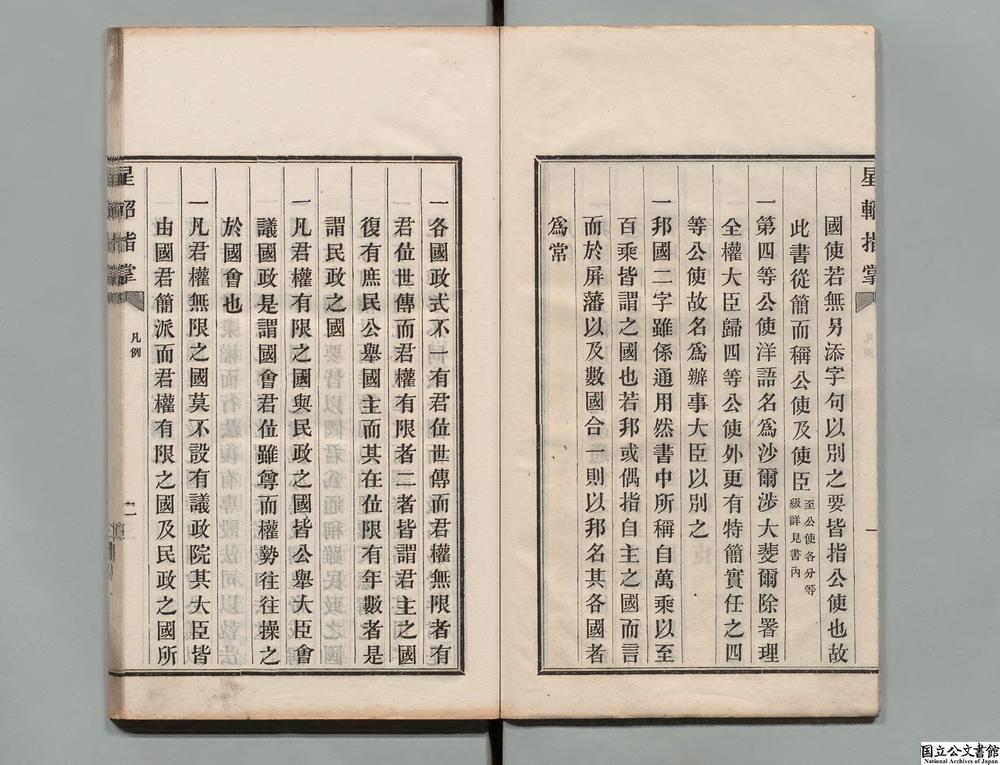 星軺指掌
國使若無另添字句以別之要皆指公使也故
此書從簡而稱公使及使臣至公使各分等
級詳見書內
一第四等公使洋語名爲沙爾渉大斐爾除署理
全權大臣歸四等公使外更有特簡實任之四
等公使故名爲辦事大臣以別之
一邦國二字雖係通用然書中所稱自萬乘以至
百乘皆謂之國也若邦或偶指自主之國而言
而於屏藩以及數國合一則以邦名其各國者
爲常
一各國政式不一有君位世傳而君權無限者有
君位世傳而君權有限者二者皆謂君主之國
復有庶民公舉國主而其在位限有年數者是
謂民政之國
一凡君權有限之國與民政之國皆公舉大臣會
議國政是謂國會君位雖尊而權勢往往操之
於國會也
一凡君權無限之國莫不設有議政院其大臣皆
由國君簡派而君權有限之國及民政之國所
星軺指掌
凡例
二
国立公文書館
National Archives of Japan